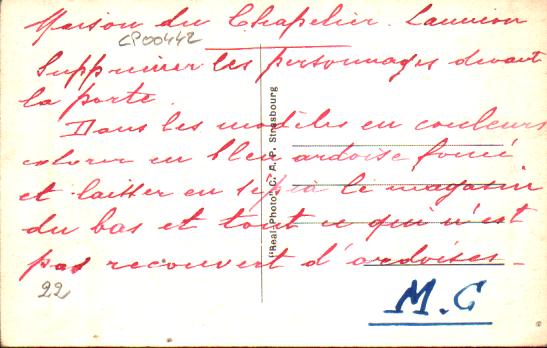 Maison du Chapelier. Lannion
CP00442
Supprimer les personnages devant
la porte.
Dans les modèles en couleurs
colorer en bleu ardoise foncé
et laisser en sépia le magasin
du bas et tout ce qui n'est
pas recouvert d'ardoises_
"Real-Photo" C. A. P. Strasbourg
22
M.C